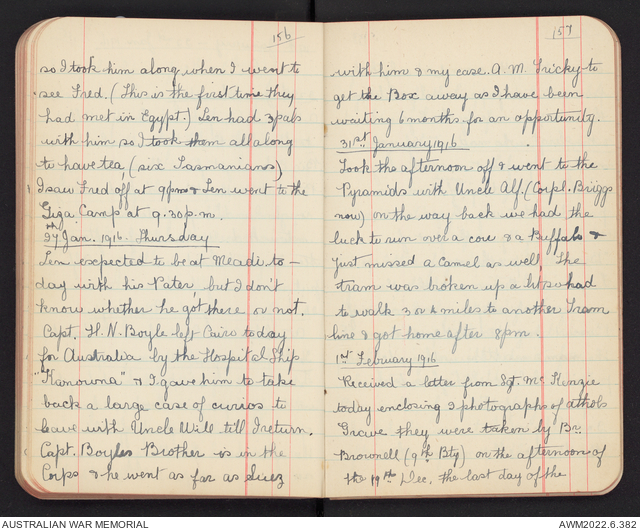 156
so I took him along when I went to
see Fred. (This is the first time they
had met in Egypt.) Len had 3 pals
with him so I took them all along
to have tea, (six Tasmanians)
I saw Fred off at 9 pm & Len went to the
Giza Camp at 9.30 p.m.
27th Jan. 1916. Thursday
Len expected to be at Meadi to-
day with his Pater, but I don't
know whether he got there or not.
Capt. H. N. Boyle left Cairo today
for Australia by the Hospital Ship
"Kanowna" & I gave him to take
back a large case of curios to
leave with Uncle Will till I return.
Capt. Boyles Brother is in the
Corps & he went as far as Suez
157
with him & my case. A. M. Tricky to
get the Box away as I have been
waiting 6 months for an opportunity.
31st January 1916
Took the afternoon off & went to the
Pyramids with Uncle Alf. (Corpl. Briggs
now) on the way back we had the
luck to run over a cow & a Buffalo &
just missed a Camel as well. The
tram was broken up a bit so had
to walk 3 or 4 miles to another Tram
line & got home after 8 pm.
1st February 1916
Received a letter from Sgt. McKenzie
today enclosing 2 photographs of Athols
Grave they were taken by Br
Brownell (9th Bty) on the afternoon of
the 19th Dec. the last day of the
AUSTRALIAN WAR MEMORIAL
AWM2022.6.382